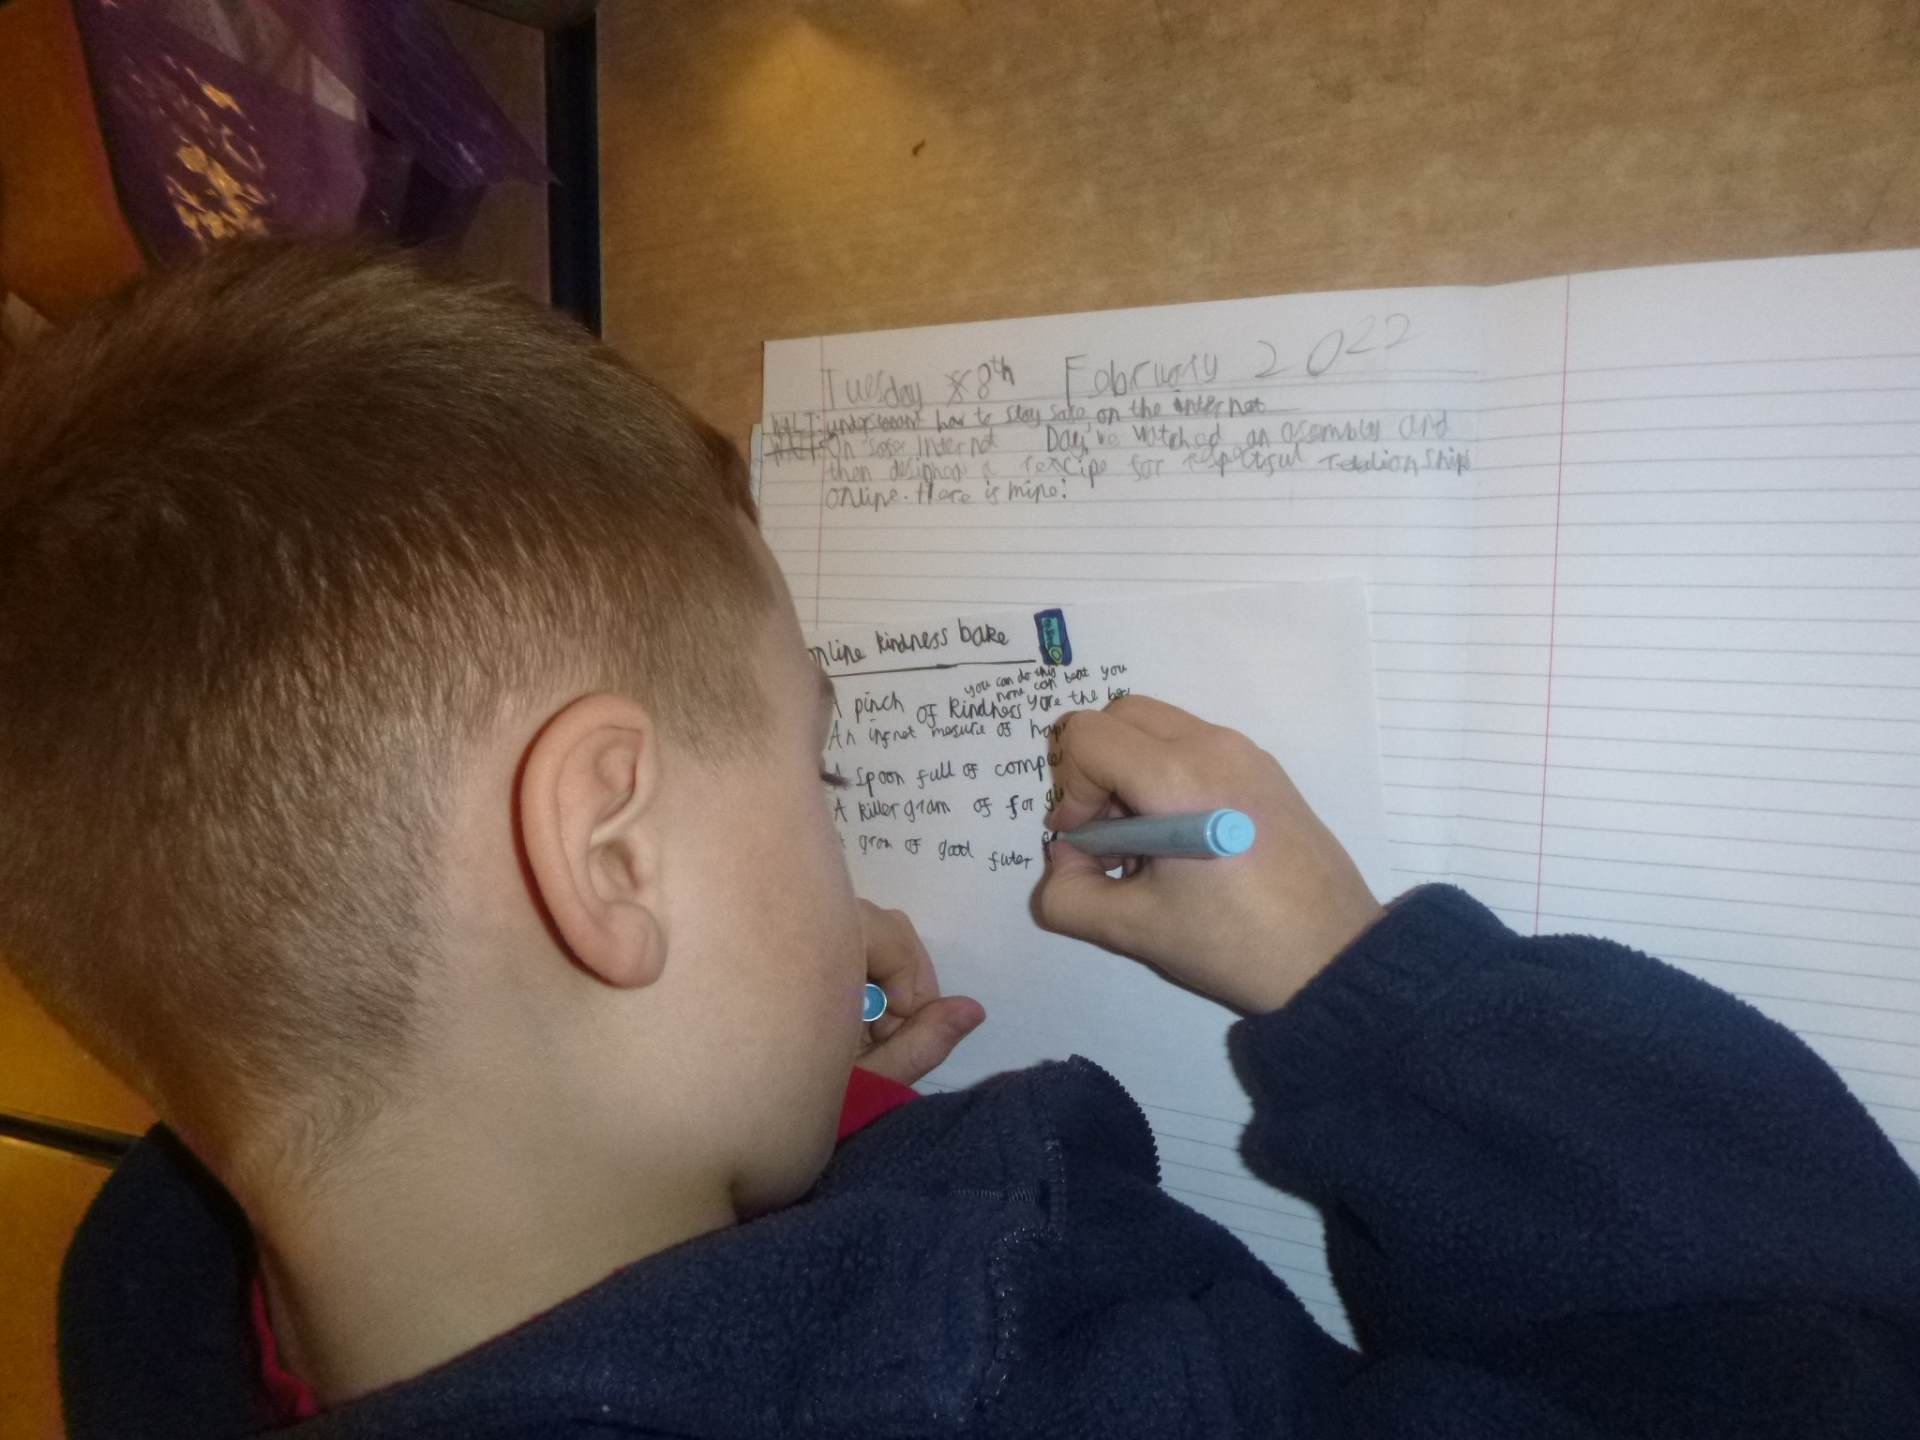 Tuesday 8th February 2022
WALT: understant how to stay safe on the internet
On safer Internet Day, we watched an assembly and
then designed a recipe for respectful relationships
online. Here is mine:
online kindness bake
you can do this
none can beat you
A pinch of kindness you're the
An infnet mesure of
A spoon full of
A killer gram of for
gram of good futer